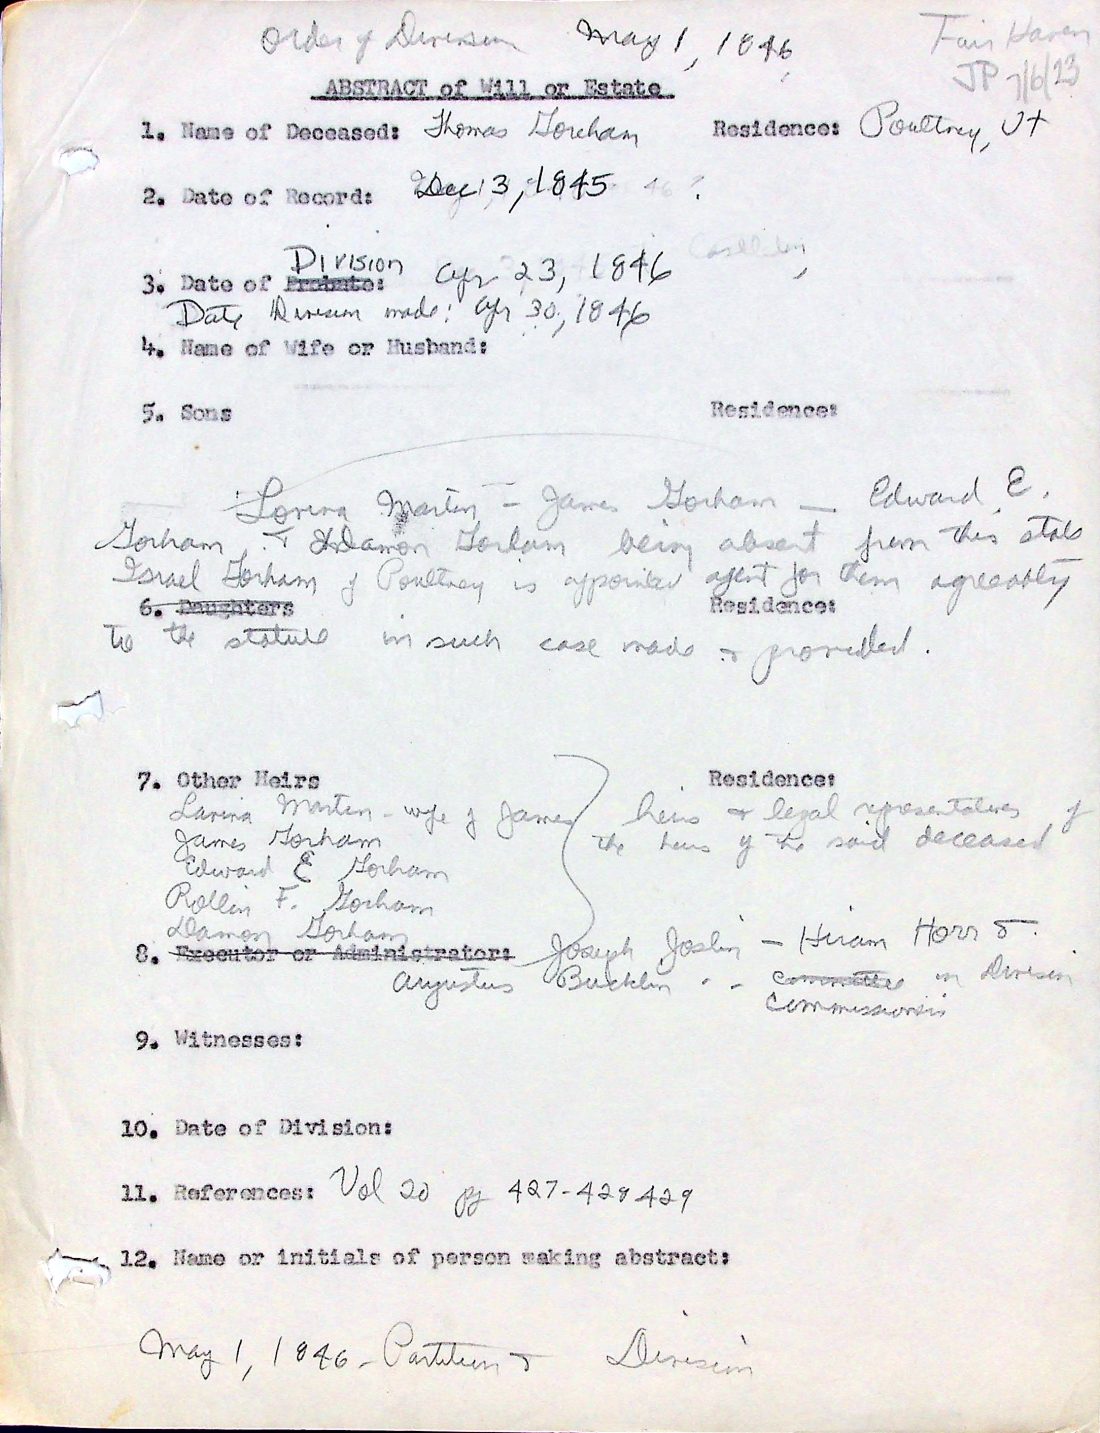 Order of Division May 1, 1846
Fair Haven
JP 7/6/23
ABSTRACT of Will or Estate
1. Name of Deceased: Thomas Goreham Residence: Poultney, Vt
2. Date of Record: Dec 3, 1845 ?
Division
3. Date of Probate: Apr 23, 1846
Date Division made: Apr 30, 1846
4. Name of Wife or Husband:
5. Sons Residence:
Lovina Martin - James Gorham - Edward E.
Gorham & Damon Gorham being absent from this state
Israel Gorham of Poultney is appointed agent for them agreeably
6. Daughters Residence:
to the statute in such case made & provided.
7. Other Heirs Residence:
Lavina Martin - wife of James heirs & legal representatives of
James Gorham the heirs of the said deceased
Edward E Gorham
Rollin F. Gorham
Damon Gorham
8. Executor or Administrator: Joseph Joslin - Hiram Horr &
Augustus Bucklin - - committee on Division
Commissioners
9. Witnesses:
10. Date of Division:
11. References: Vol 20 pg 427-428 429
12. Name or initials of person making abstract:
May 1, 1846 - Partition & Division